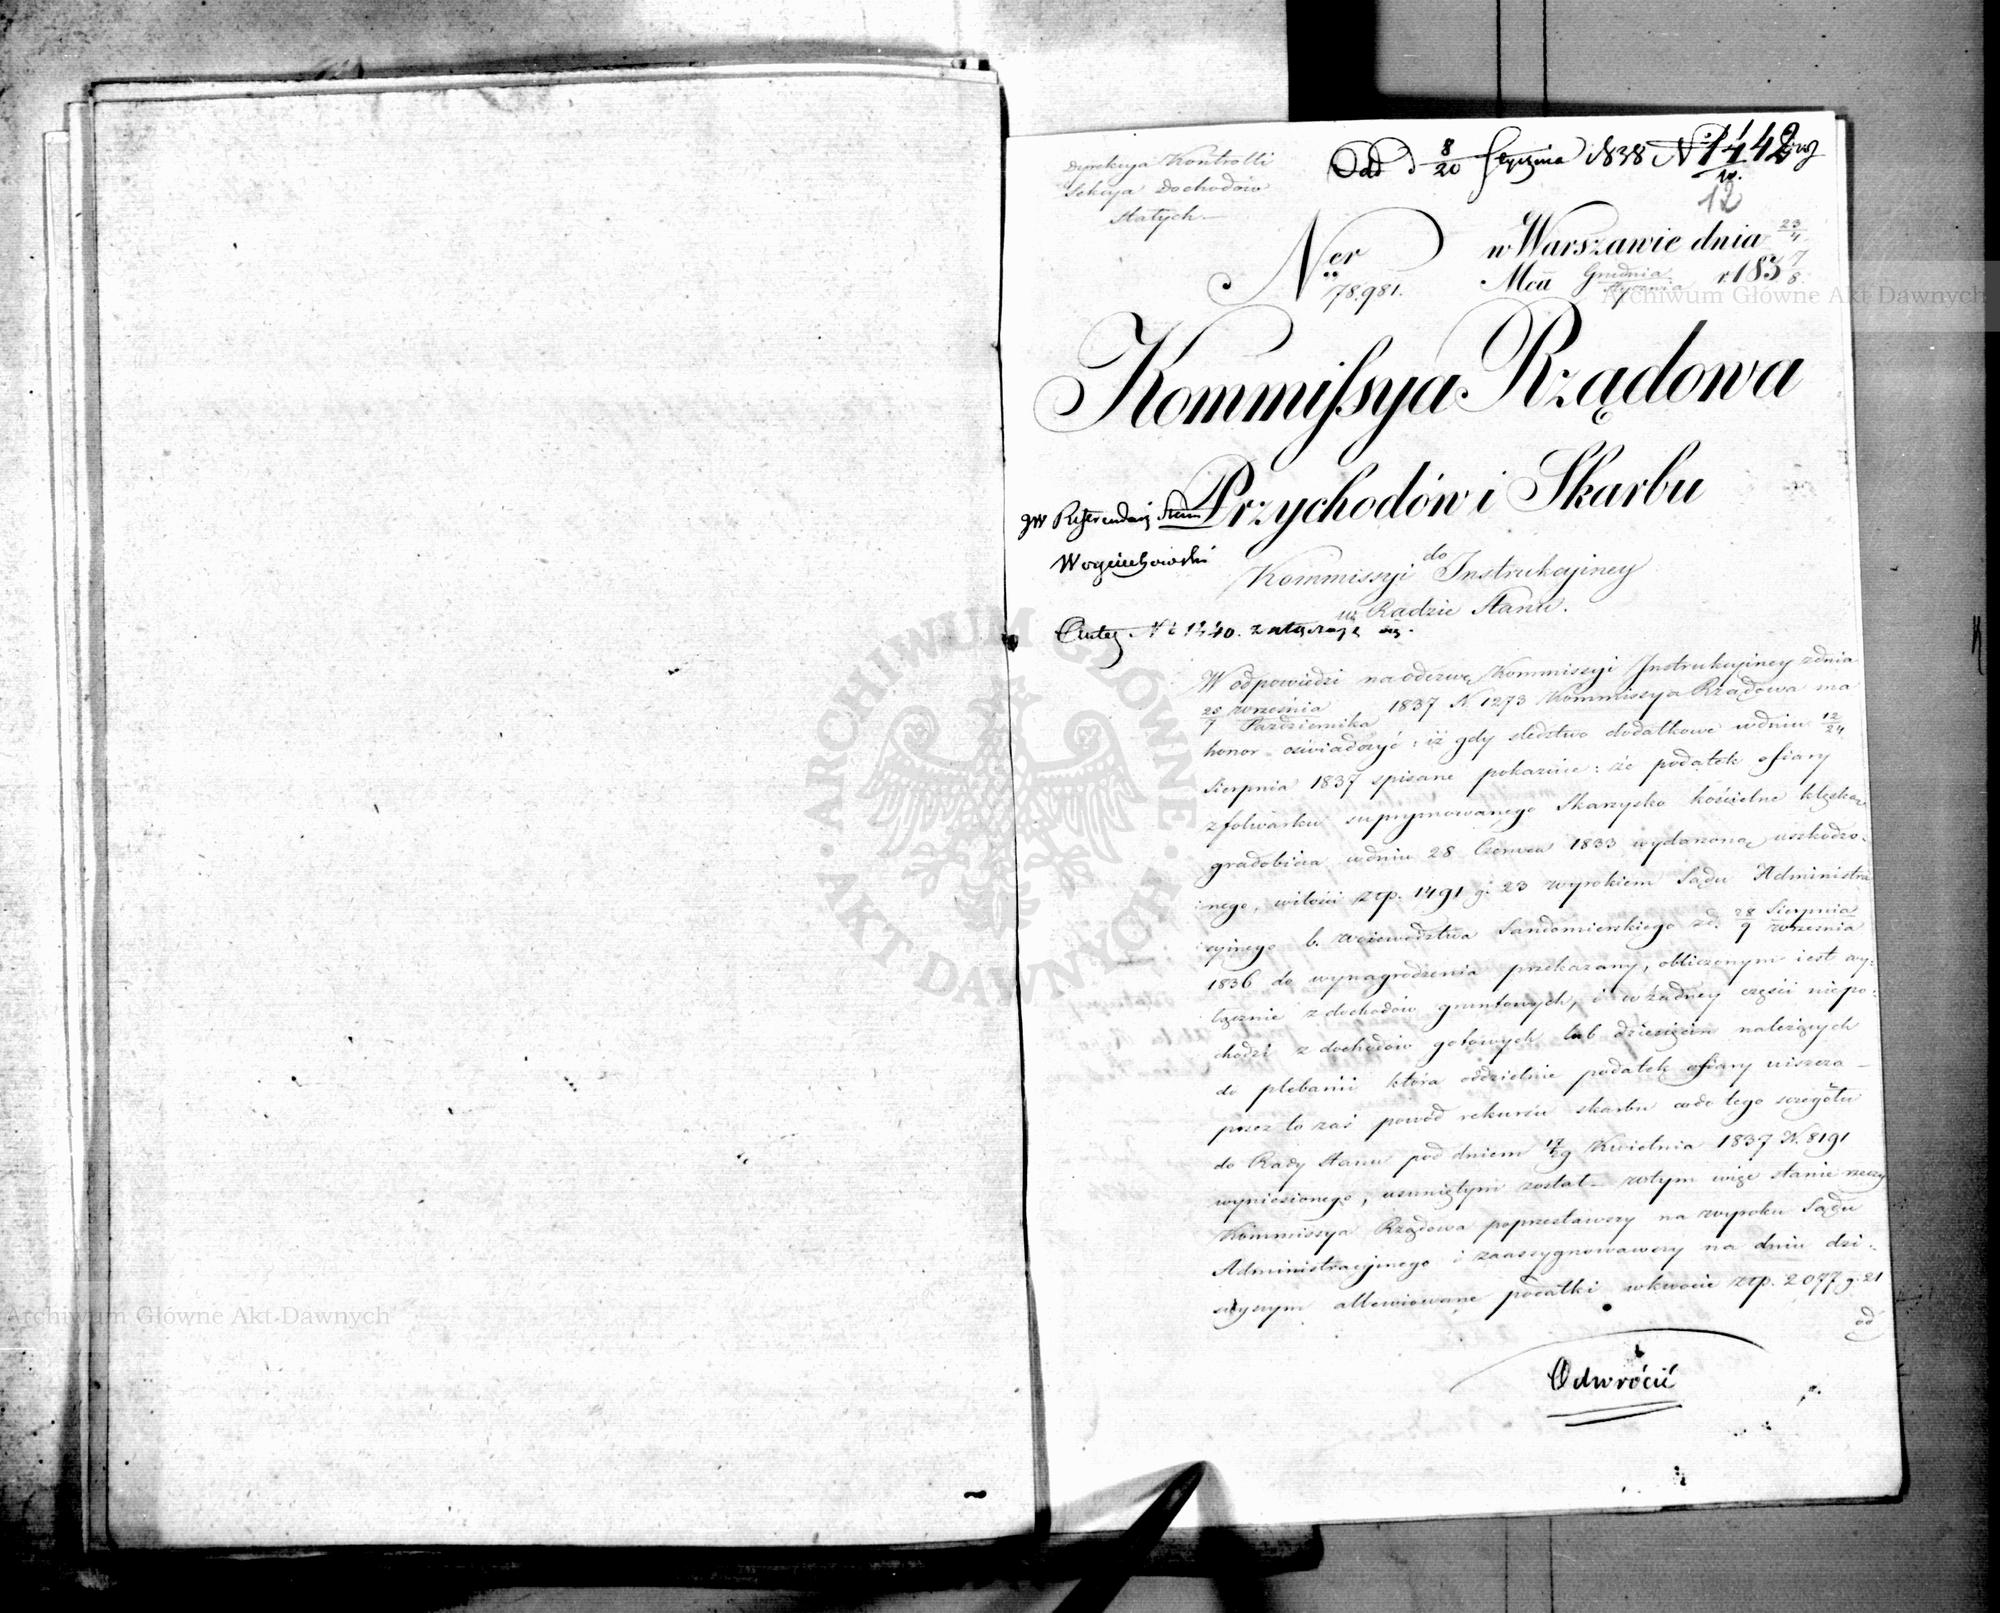 Dyrekcya Kontrolli
Sekcya Dochodów
Stałych
Odd d 8/20 Stycznia 1838 N 1442
12
Ner 78,981.
w Warszawie dnia 23/4
Mca Grudnia/Stycznia r. 183 7/8
Kommissya Rządowa
Przychodów i Skarbu
JW Referendarz Stanu
Woyciechowski
do
Kommissyi Instrukcyiney
w Radzie Stanu.
N 1440. załączają się.
W odpowiedzi na odezwę Kommissyi Instrukcyiney z dnia
25 września/7 Października 1837 N. 1273 Kommissya Rządowa ma
honor oświadczyć: iż gdy śledztwo dodatkowe w dniu 12/24
Sierpnia 1837 spisane pokazuie: że podatek ofiary
z folwarku suprymowanego Skarzysko kościelne klęską
gradobicia w dniu 28 Czerwca 1833 wydarzoną uszkodzo-
nego, w ilości złp. 1491 g. 23 wyrokiem Sądu Administra
cyinego b. Woiewództwa Sandomierskiego z d. 28 Sierpnia/9 Września
1836 do wynagrodzenia przekazany, obliczonym iest wy-
łącznie z dochodów gruntowych, i w żadney części niepo-
chodzi z dochodów gotowych lub dziesięcin należących
do plebanii która oddzielnie podatek ofiary uiszcza —
przez to zaś powód rekursu skarbu co do tego szczegółu
do Rady Stanu pod dniem 17/29 Kwietnia 1837 N. 8191
wyniesionego, usuniętym został — w tym więc stanie rzeczy
Kommissya Rządowa poprzestawszy na wyroku Sądu
Administracyinego i zaassygnowawszy na dniu dzi-
sieyszym allewiowane podatki w kwocie złp. 2077 g. 21
od
Odwrócić
Archiwum Główne Akt Dawnych
ARCHIWUM GŁÓWNE · AKT DAWNYCH ·
Archiwum Główne Akt Dawnych